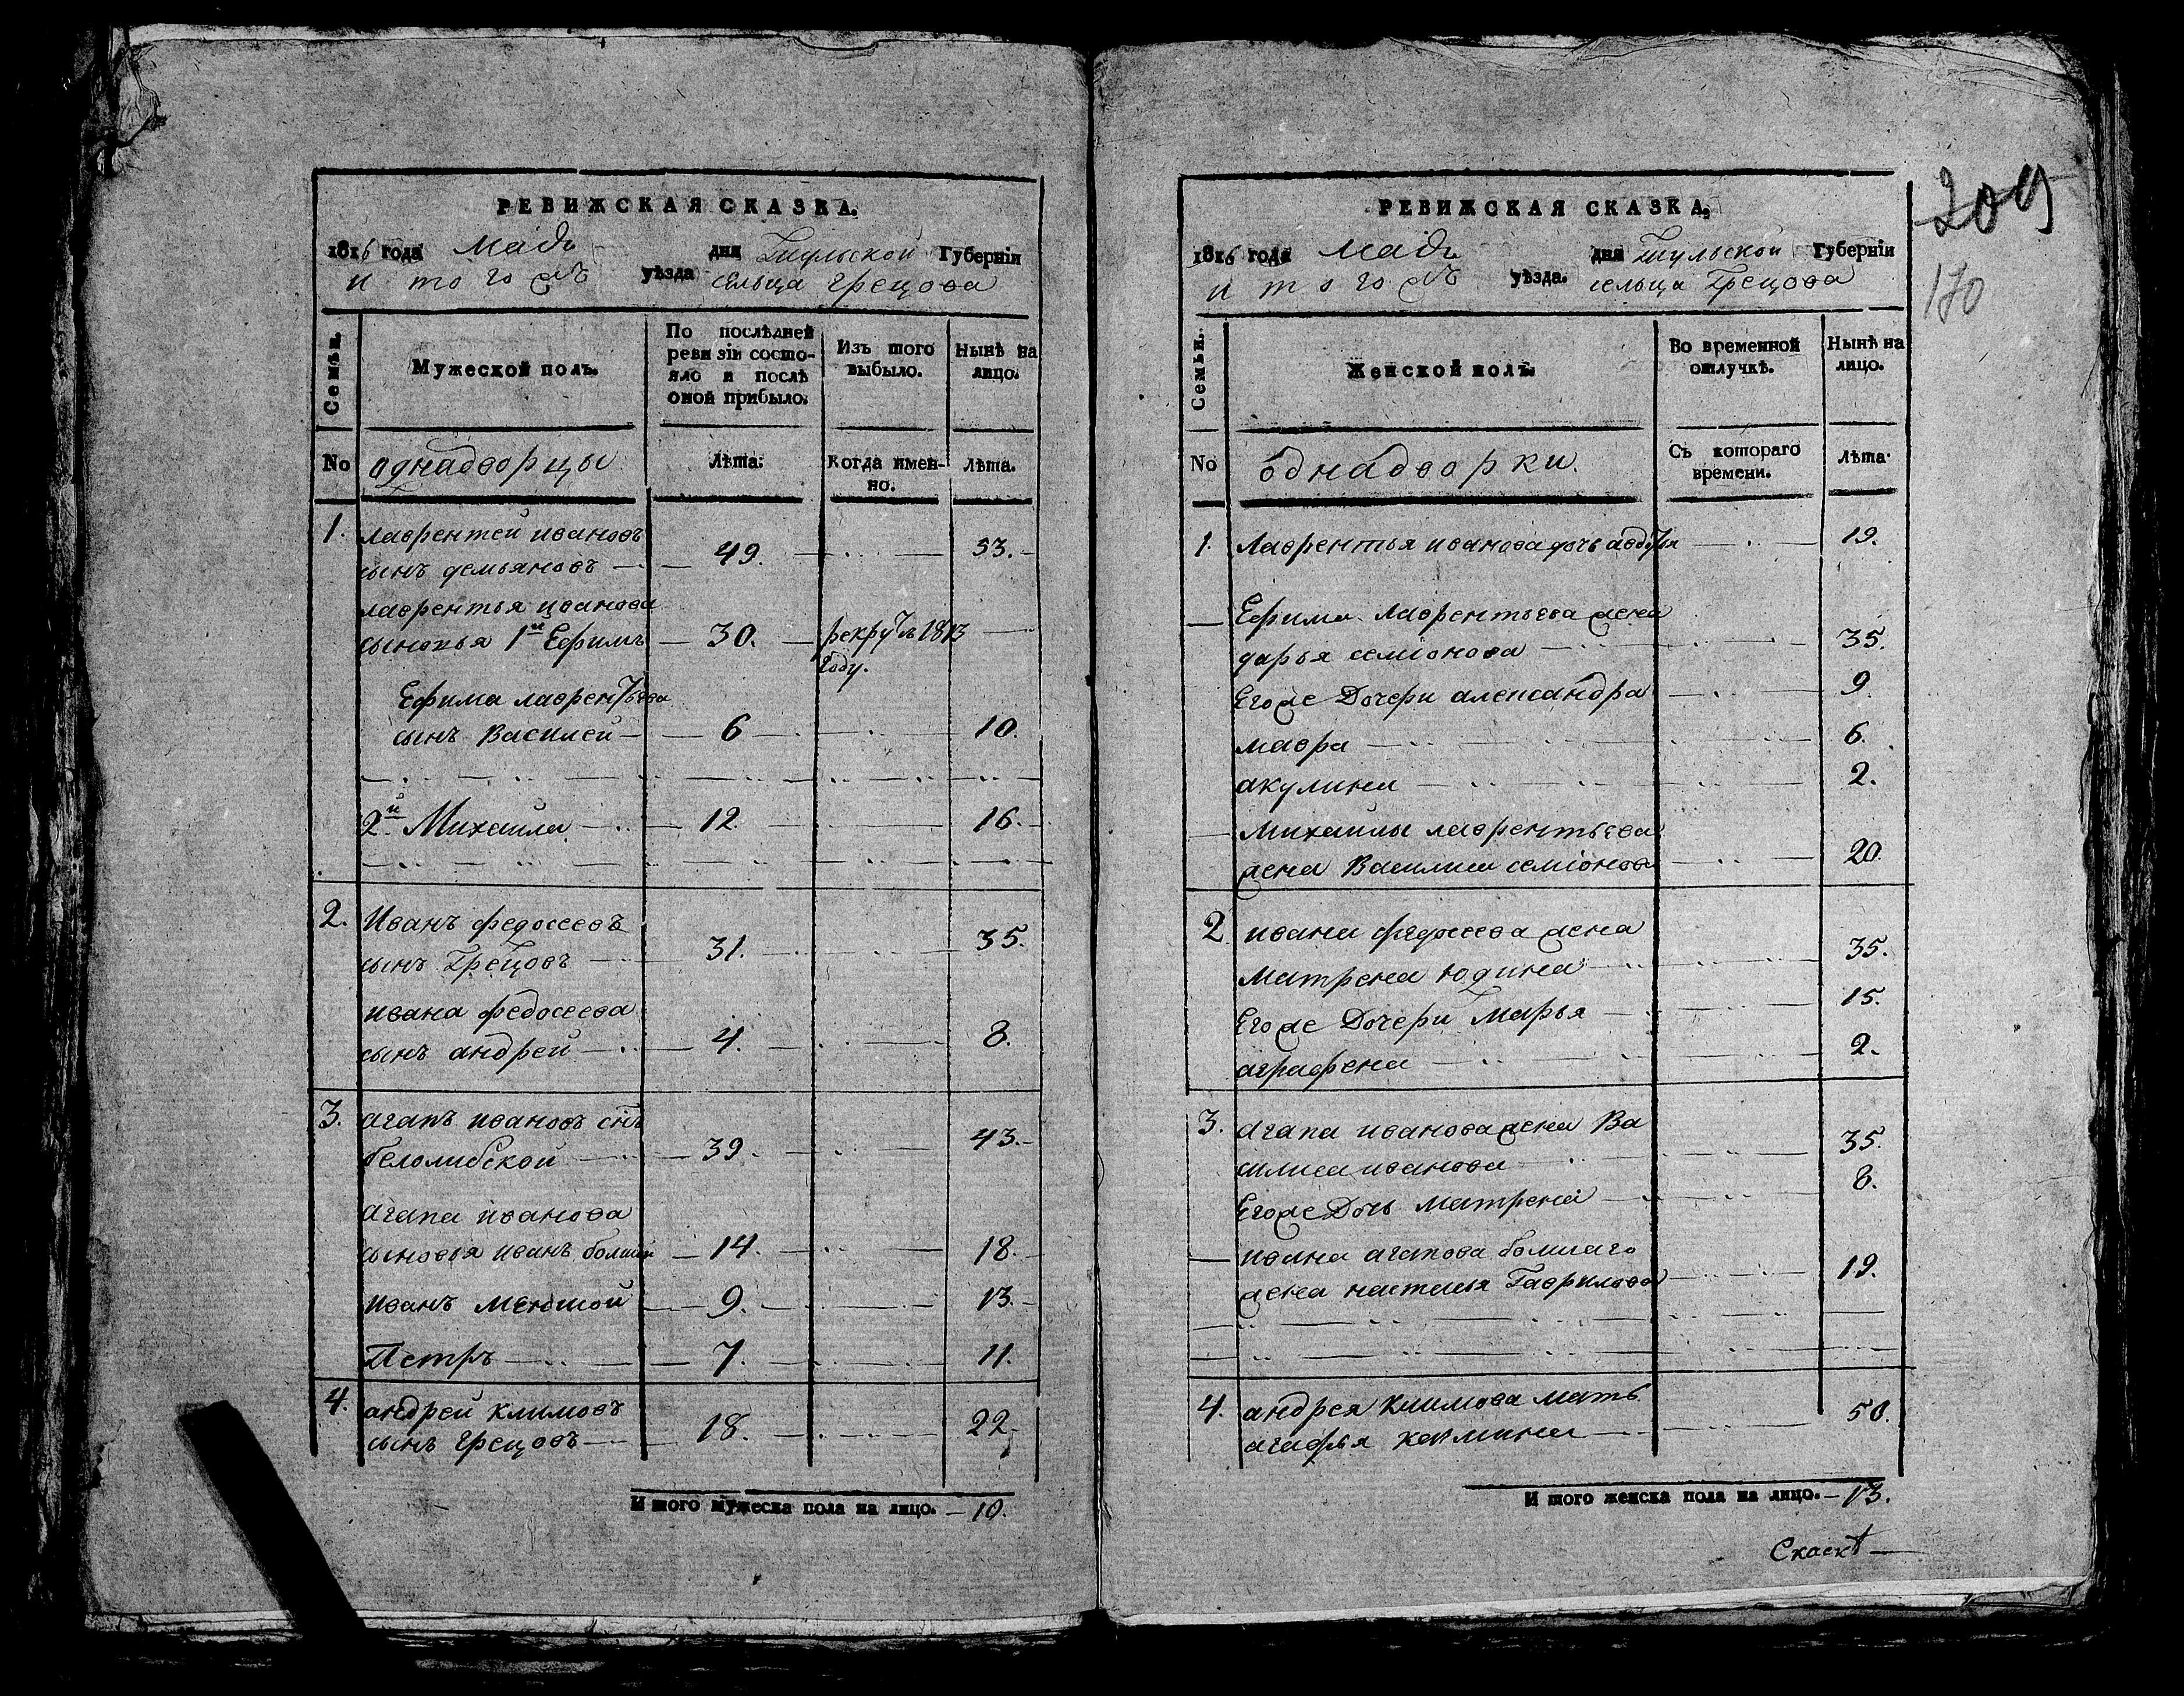 РЕВИЖСКАЯ СКАЗКА.
1816 года маія дня Тульской Губерніи
и того жъ уѣзда сельца грецова
Семьи.
Мужеской полъ.
По послѣдней ревизіи состояло и послѣ оной прибыло.
Изъ того выбыло.
Нынѣ на лицо.
No
однадворцы
Лѣта.
Когда именно.
Лѣта.
1. лаврентей ивановъ
сынъ демьяновъ 49. 53.
лаврентья иванова
сыновья 1й Ефимъ 30. рекрутъ 1813
году.
Ефима лаврентьева
сынъ Василей 6 10.
2й Михаила 12. 16.
2. Иванъ федосеевъ
сынъ Грецовъ 31. 35.
ивана федосеева
сынъ андрей 4. 8.
3. агапъ ивановъ снъ
39. 43.
агапа иванова
сыновья иванъ болшей 14. 18.
иванъ меншой 9. 13.
Петръ 7. 11.
4. андрей климовъ
сынъ грецовъ 18. 22.
И того мужеска пола на лицо. 10.
209
170
РЕВИЖСКАЯ СКАЗКА.
1816 года маія дня Тульской Губерніи
и того жъ уѣзда. сельца Грецова
Семьи.
Женской полъ.
Во временной отлучкѣ.
Нынѣ на лицо.
No
однадворки.
Съ котораго времени.
Лѣта.
1. Лаврентья иванова дочь авдотья 19.
Ефима лаврентьева жена
дарья семіонова 35.
Егоже Дочери александра 9.
мавра 6.
акулина 2.
михаилы лаврентьева
жена Василиса семіонова 20.
2. ивана федосеева жена
матрена юдина 35.
Егоже Дочери Марья 15.
аграфена 2.
3. агапа иванова жена Ва
силиса иванова 35.
Егоже Дочь матрена 8.
ивана агапова болшаго
жена насталья Гаврилова 19.
4. андрея климова мать
агафья 50.
И того женска пола на лицо. 13.